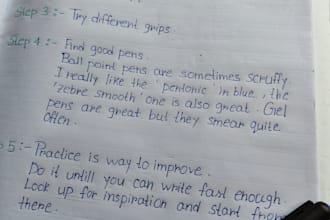 Step 3 :- Try different grips.
Step 4 :- Find good pens.
Ball point pens are sometimes scruffy.
I really like the 'pentonic' in blue, the
'zebre smooth' one is also great. Gel
pens are great but they smear quite
often.
5 :- Practice is way to improve.
Do it untill you can write fast enough.
Look up for inspiration and start from
there.